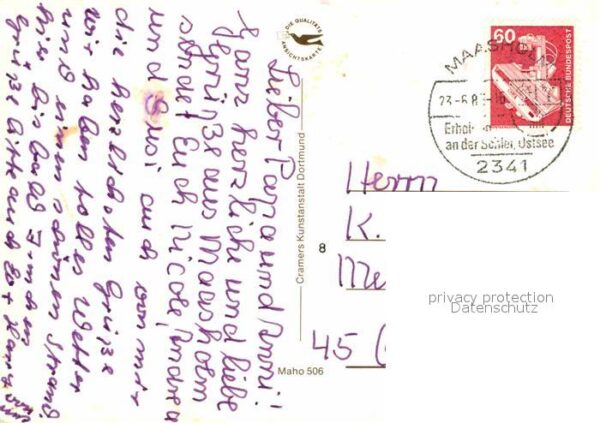 Lieber Papa und Anni!
Ganz herzliche und liebe
Grüße aus Maasholm
sendet Euch Nicole, Andrea
und Susi auch von mir
die herzlichsten Grüße
wir haben tolles Wetter
und einen schönen Strand.
Grüße bitte auch
DIE QUALITÄTS
ANSICHTSKARTE
Cramers Kunstanstalt Dortmund
Maho 506
8
60
DEUTSCHE BUNDESPOST
MAASHOLM
23.-6.8
an der Schlei, Ostsee
2341
Herrn
K.
Me
45 (
privacy protection
Datenschutz